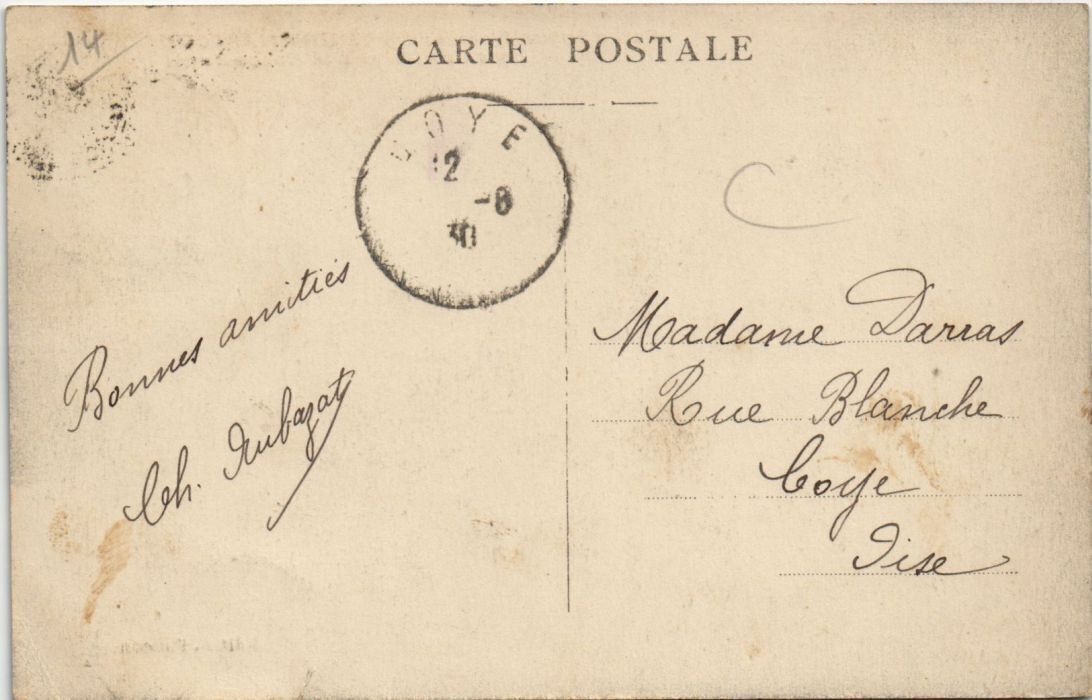 14
CARTE POSTALE
COYE
12
-8
30
C
Bonnes amitiés
Ch. Aubazat
Madame Darras
Rue Blanche
Coye
Oise